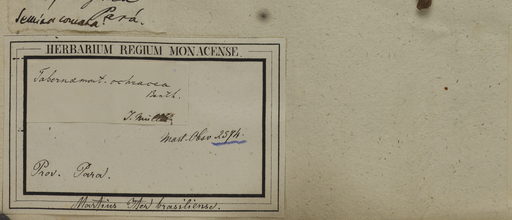 Semina comata Pará.
HERBARIUM REGIUM MONACENSE.
Tabernaemont. ochracea
Benth.
J. Müller
Mart. Obs. 2574.
Prov. Para.
Martius Iter brasiliense.